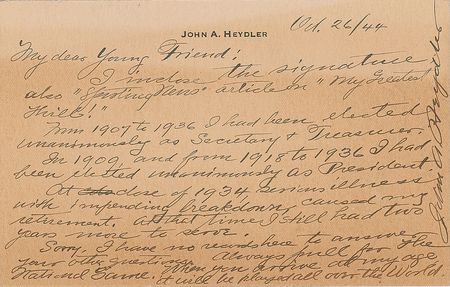 JOHN A. HEYDLER
Oct. 26/44
My dear Young Friend:
I inclose the signature
also "Sporting News" article on "My Greatest
Thrill."
From 1907 to 1936 I had been elected
unanimously as Secretary & Treasurer.
In 1909, and from 1918 to 1936 I had
been elected unanimously as President.
At close of 1934 serious illness
with impending breakdown, caused my
retirement. At that time I still had two
years more to serve.
Sorry, I have no records here to answer
your other questions. Always pull for the
National Game. When you arrive at my age
it will be played all over the World.
John A Heydler